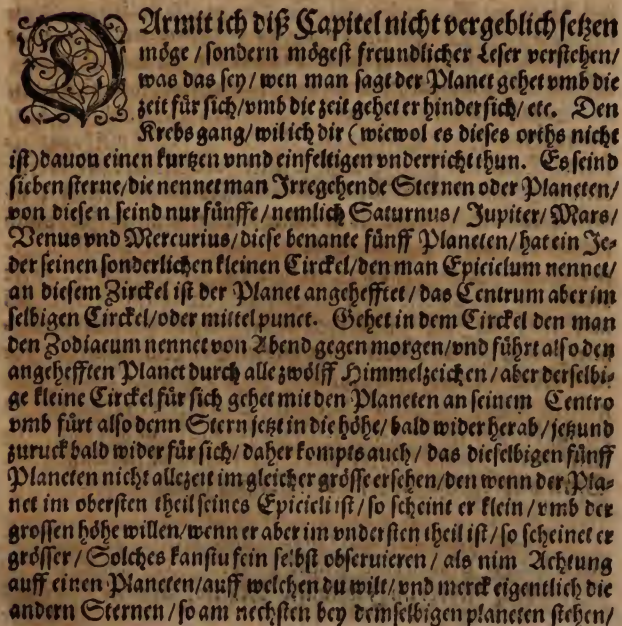 DArmit ich diß Capitel nicht vergeblich setzen
möge / sondern mögest freundlicher Leser verstehen/
was das sey/ wen man sagt der Planet gehet vmb die
zeit für sich/ vmb die zeit gehet er hinder sich/ etc. Den
Krebsgang/ wil ich dir (wiewol es dieses orths nicht
ist) dauon einen kurtzen vnnd einfeltigen vnderricht thun. Es seind
sieben sterne/ die nennet man Irregehende Sternen oder Planeten/
von diesen seind nur fünffe / nemlich Saturnus/ Jupiter/ Mars/
Venus vnd Mercurius/ diese benante fünff Planeten/ hat ein Je-
der seinen sonderlichen kleinen Circkel/ den man Epiciclum nennet/
an diesem Zirckel ist der Planet angehefftet / das Centrum aber im
selbigen Circkel/ oder mittel punct. Gehet in dem Circkel den man
den Zodiacum nennet von Abend gegen morgen/ vnd führt also den
angehefften Planet durch alle zwölff Himmelzeichen / aber derselbi-
ge kleine Circkel für sich gehet mit den Planeten an seinem Centro
vmb fürt also denn Stern jetzt in die höhe/ bald wider herab / jetzund
zuruck bald wider für sich/ daher kompts auch / das dieselbigen fünff
Planeten nicht allezeit im gleicher grösse ersehen/ den wenn der Pla-
net im obersten theil seines Epicicli ist / so scheint er klein / vmb der
grossen höhe willen/ wenn er aber im vndersten theil ist / so scheinet er
grösser / Solches kanstu fein selbst obseruieren / als nim Achtung
auff einen Planeten/ auff welchen du wilt/ vnd merck eigentlich die
andern Sternen / so am nechsten bey demselbigen planeten stehen/